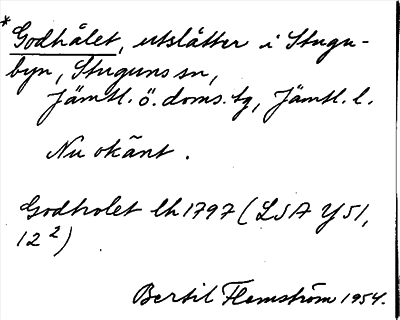 *Godhålet, utslåtter i Stugu-
byn, Stuguns sn,
Jämtl. ö. doms. tg, Jämtl. l.
Nu okänt.
Godholet lh 1797 (LSA Y 51,
12²)
Bertil Flemström 1954.